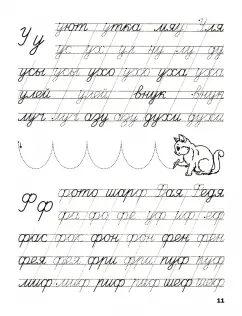 Уу уют утка мяу Уля
ус ух ул ну му ду
усы усы ухо ухо уха уха
улей улей внук внук
луг луг азу азу духи духи
Фф фото шарф Фая Федя
фа фо фе уф иф еф
фас фас фон фон фен фен
фея фея фри фри пуф пуф
миф миф риф риф шеф шеф
11